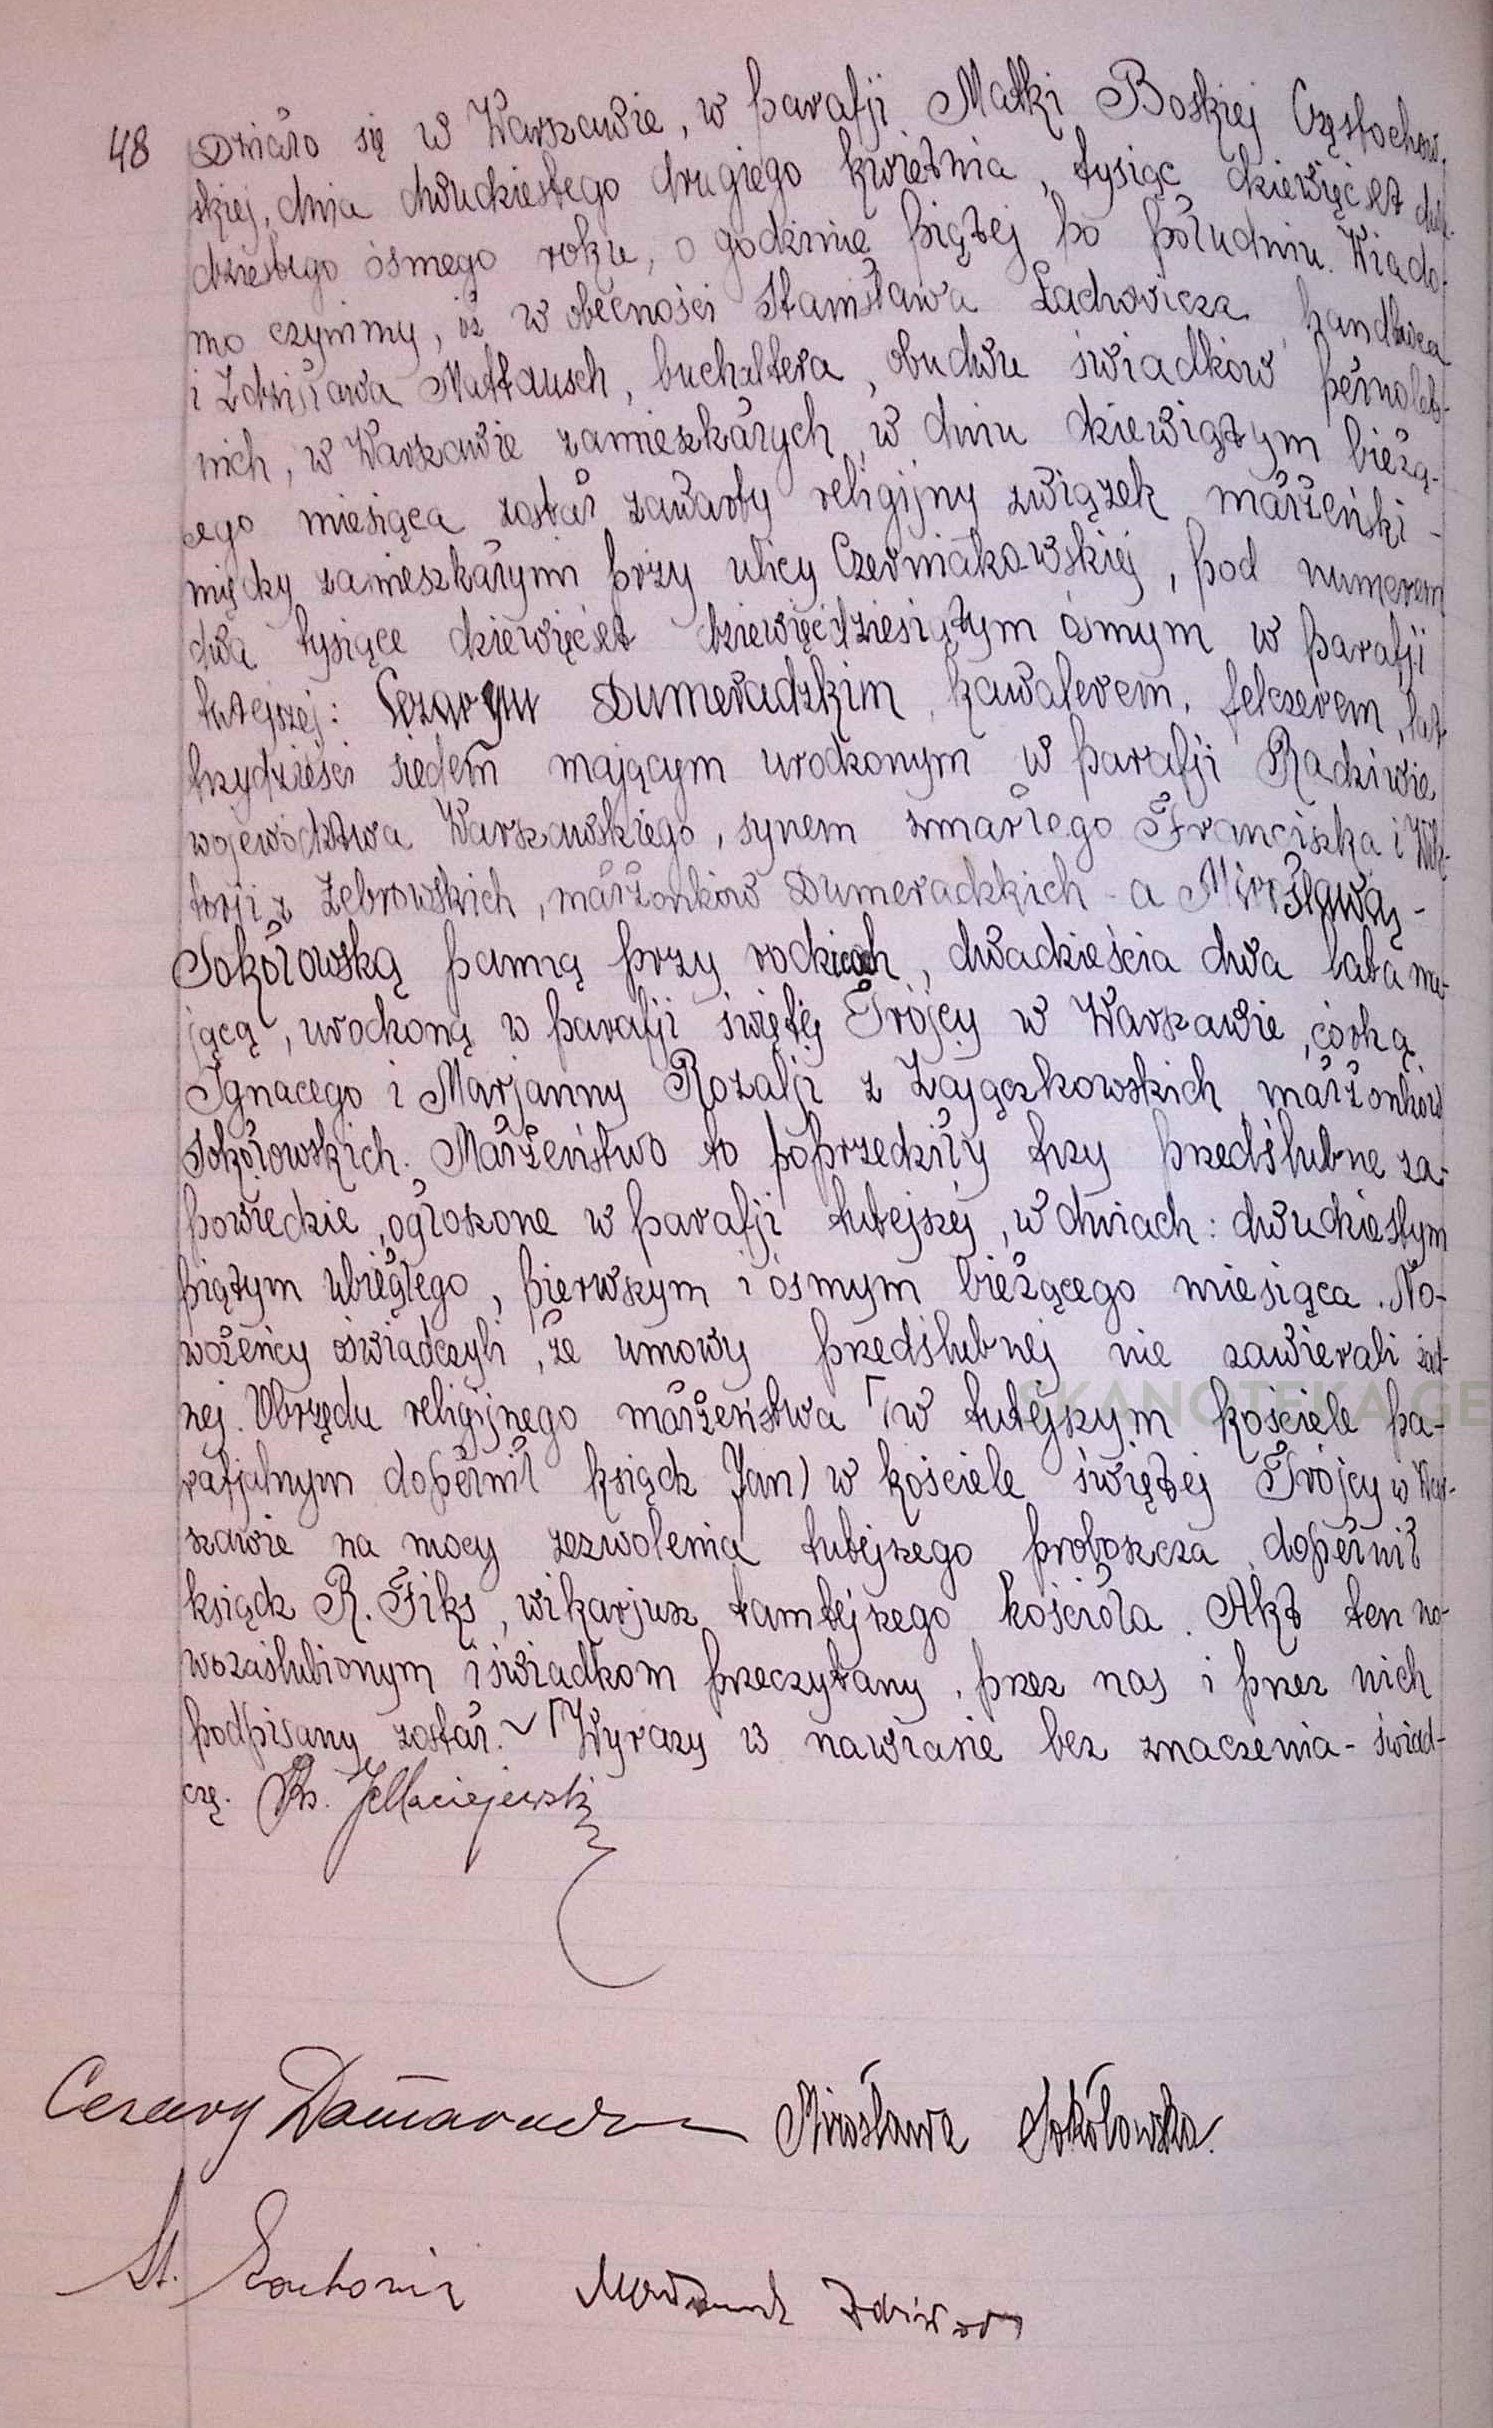 48 Działo się w Warszawie, w parafji Matki Boskiej Częstochow-
skiej, dnia dwudziestego drugiego kwietnia, tysiąc dziewięćset dwu-
dziestego ósmego roku, o godzinie piątej po południu. Wiado-
mo czynimy, iż w obecności Stanisława Lachowicza, handlowca
i Zdzisława Mattausch, buchaltera, obudwu świadków pełnolet-
nich, w Warszawie zamieszkałych, w dniu dziewiątym bieżą-
cego miesiąca został zawarty religijny związek małżeński -
między zamieszkałymi przy ulicy Czerniakowskiej, pod numerem
dwa tysiące dziewięćset dziewięćdziesiątym ósmym w parafji
tutejszej: Cezarym Dumeradzkim, kawalerem, felczerem, lat
trzydzieści siedem mającym urodzonym w parafji Radziwie
województwa Warszawskiego, synem zmarłego Franciszka i Wik-
torji z Żebrowskich, małżonków Dumeradzkich - a Mirosławą -
Sokołowską panną przy rodzicach, dwadzieścia dwa lata ma-
jącą, urodzoną w parafji świętej Trójcy w Warszawie, córką
Ignacego i Marjanny Rozalji z Zajączkowskich małżonków
Sokołowskich. Małżeństwo to poprzedziły trzy przedślubne za-
powiedzie, ogłoszone w parafji tutejszej, w dniach: dwudziestym
piątym ubiegłego, pierwszym i ósmym bieżącego miesiąca. No-
wożeńcy oświadczyli, że umowy przedślubnej nie zawierali żad-
nej. Obrzędu religijnego małżeństwa (w tutejszym kościele pa-
rafjalnym dopełnił ksiądz Jan) w kościele świętej Trójcy w War-
szawie na mocy zezwolenia tutejszego proboszcza dopełnił
ksiądz R. Fiks, wikarjusz tamtejszego kościoła. Akt ten no-
wozaślubionym i świadkom przeczytany, przez nas i przez nich
podpisany został. Wyrazy w nawiasie bez znaczenia - świad-
czę. Ks. J. Maciejewski
Cezary Mirosława Sokołowska.
St.
SKANOTEKA.GE